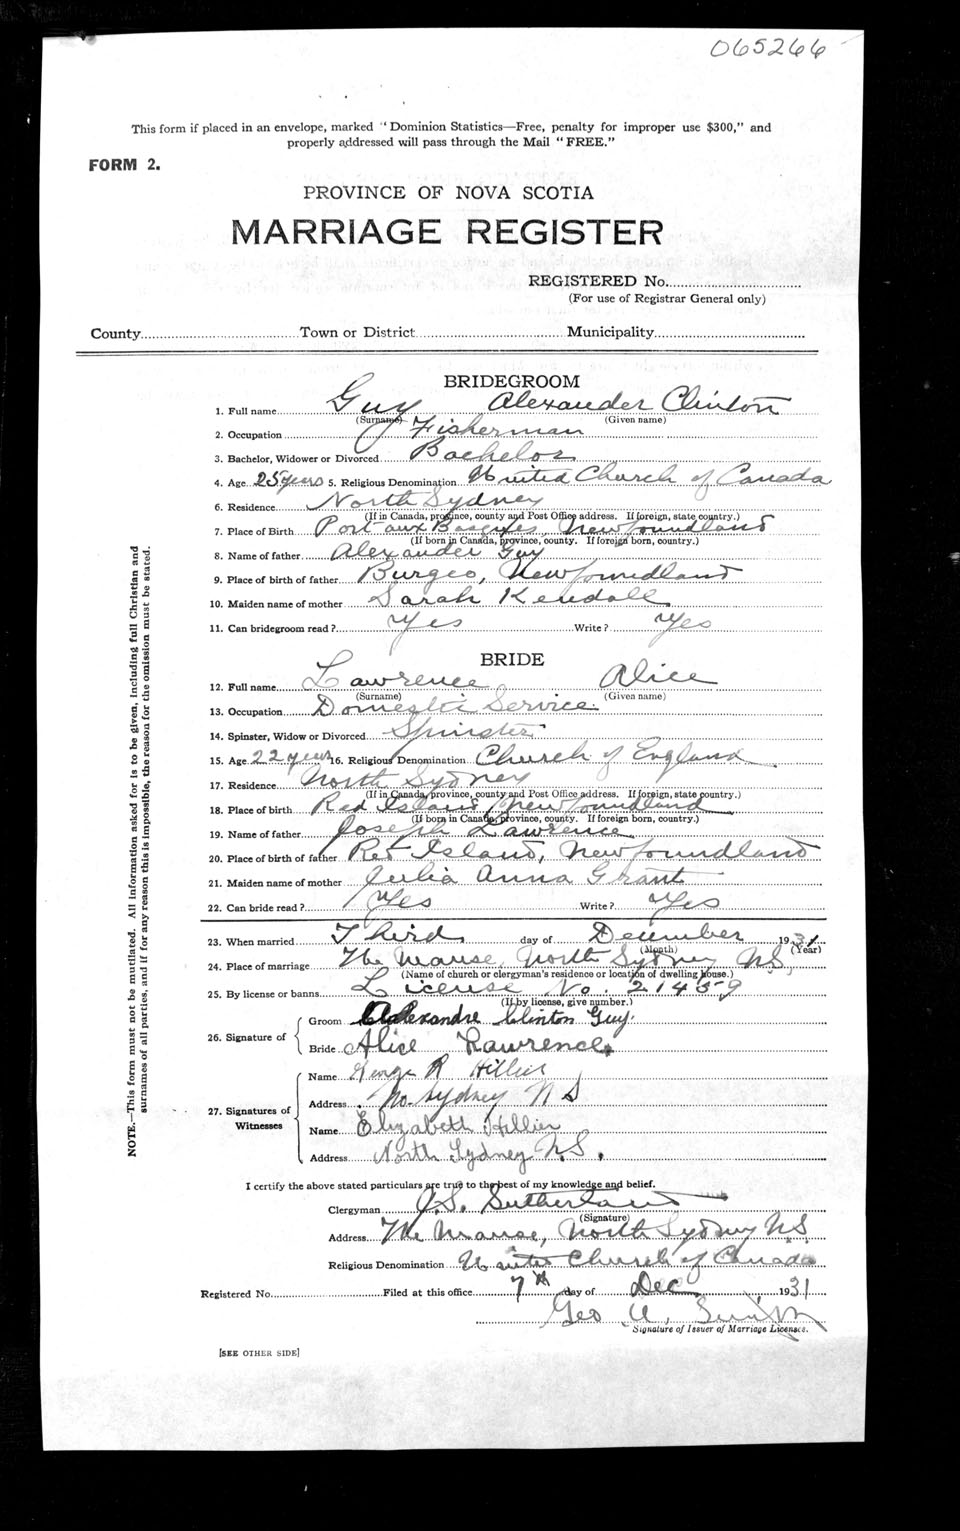 065266
This form if placed in an envelope, marked "Dominion Statistics—Free, penalty for improper use $300," and
properly addressed will pass through the Mail "FREE."
FORM 2.
PROVINCE OF NOVA SCOTIA
MARRIAGE REGISTER
REGISTERED No.
(For use of Registrar General only)
County Town or District Municipality
BRIDEGROOM
1. Full name Guy Alexander Clinton
(Surname) (Given name)
2. Occupation Fisherman
3. Bachelor, Widower or Divorced Bachelor
4. Age 25 years 5. Religious Denomination United Church of Canada
6. Residence North Sydney
(If in Canada, province, county and Post Office address. If foreign, state country.)
7. Place of Birth Port aux Basques, Newfoundland
(If born in Canada, province, county. If foreign born, country.)
8. Name of father Alexander Guy
9. Place of birth of father Burgeo, Newfoundland
10. Maiden name of mother Sarah Kendall
11. Can bridegroom read? Yes Write? Yes
BRIDE
12. Full name Lawrence Alice
(Surname) (Given name)
13. Occupation Domestic Service
14. Spinster, Widow or Divorced Spinster
15. Age 22 years 16. Religious Denomination Church of England
17. Residence North Sydney
(If in Canada, province, county and Post Office address. If foreign, state country.)
18. Place of birth Red Island, Newfoundland
(If born in Canada, province, county. If foreign born, country.)
19. Name of father Joseph Lawrence
20. Place of birth of father Red Island, Newfoundland
21. Maiden name of mother Julia Anna Grant
22. Can bride read? Yes Write? Yes
23. When married Third day of December 1931
(Month) (Year)
24. Place of marriage The Manse, North Sydney N.S.
(Name of church or clergyman's residence or location of dwelling house.)
25. By license or banns License No. 21459
(If by license, give number.)
26. Signature of
Groom Alexandre Clinton Guy.
Bride Alice Lawrence
27. Signatures of Witnesses
Name George R Hillier
Address No. Sydney N S
Name Elizabeth Hillier
Address North Sydney N.S.
I certify the above stated particulars are true to the best of my knowledge and belief.
Clergyman J.S. Sutherland
(Signature)
Address The Manse, North Sydney N.S.
Religious Denomination United Church of Canada
Registered No. Filed at this office 7th day of Dec 1931
Geo A. Smith
Signature of Issuer of Marriage Licenses.
[SEE OTHER SIDE]
NOTE.—This form must not be mutilated. All information asked for is to be given, including full Christian and
surnames of all parties, and if for any reason this is impossible, the reason for the omission must be stated.